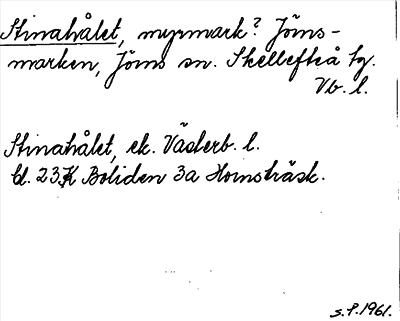 Stinahålet, myrmark? Jörns-
marken, Jörns sn. Skellefteå tg.
Vb. l.
Stinahålet, ek. Västerb. l.
bl. 23 K Boliden 3a Hornsträsk.
s.P. 1961.